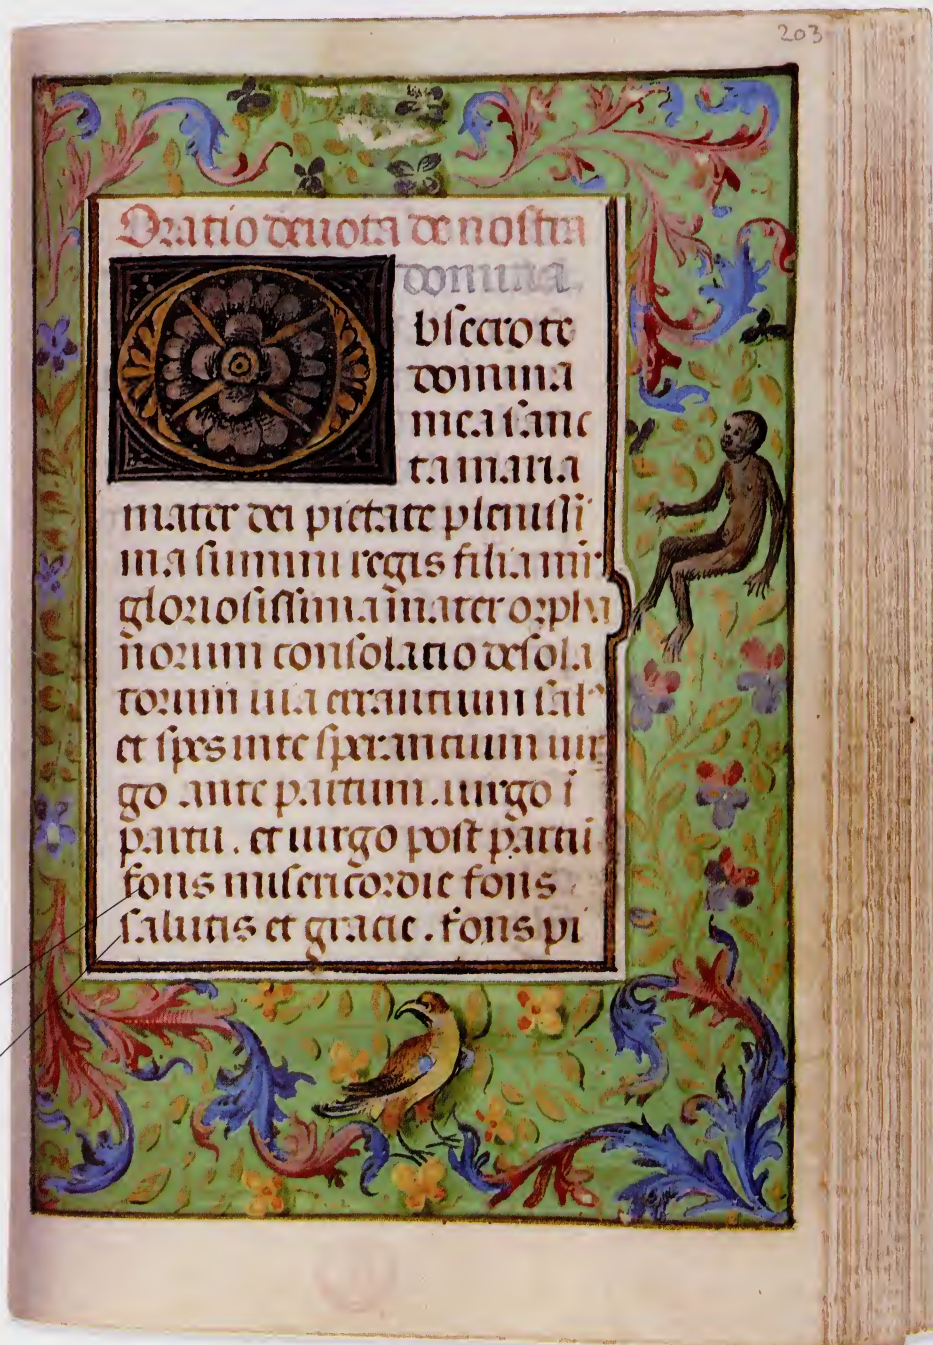 203
Oratio deuota de nostra
domina
bsecro te
domina
mea sanc
ta maria
mater dei pietate plenissi
ma summi regis filia
gloriosissima mater orpha
norum consolatio desola
torum uia errantium sal
et spes in te sperantium uir
go ante partum. uirgo ī
partu. et uirgo post partū
fons misericordie fons
salutis et gracie. fons pi